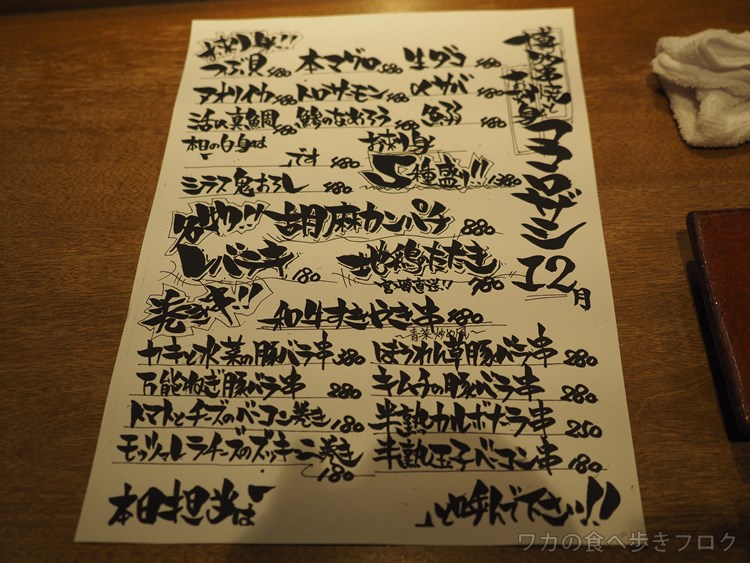 ココロザシ 12月
刺り身!!
つぶ貝 480 本マグロ 480 生ダコ 480
アオリイカ 480 トロサーモン 480 〆サバ 480
活〆真鯛 480 鯵のなめろう 480 480
本日の白身は です 480
お刺り身 5種盛り!! 1380
シラス鬼おろし 480
胡麻カンパチ 880
レバニラキ 180
地鶏たたき 宮崎直送!! 780
巻き串!! 和牛すきやき串 480
〜青菜炒め風〜
カキと水菜の豚バラ串 380 ほうれん草豚バラ串 280
万能ねぎ豚バラ串 280 キムチの豚バラ串 280
トマトとチーズのベーコン巻き 180 半熟カルボナーラ串 250
モッツァレラチーズのズッキーニ巻き 180 半熟玉子ベーコン串 180
本日担当は「 」と呼んで下さい!!
ワカの食べ歩きブログ